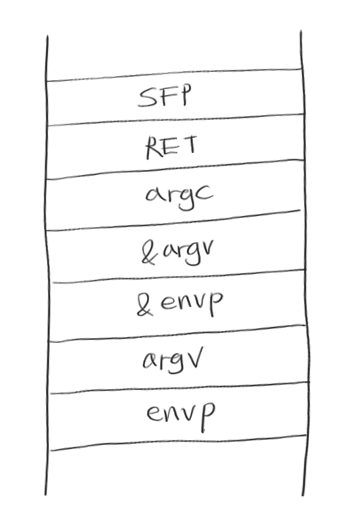 SFP
RET
argc
&argv
&envp
argv
envp